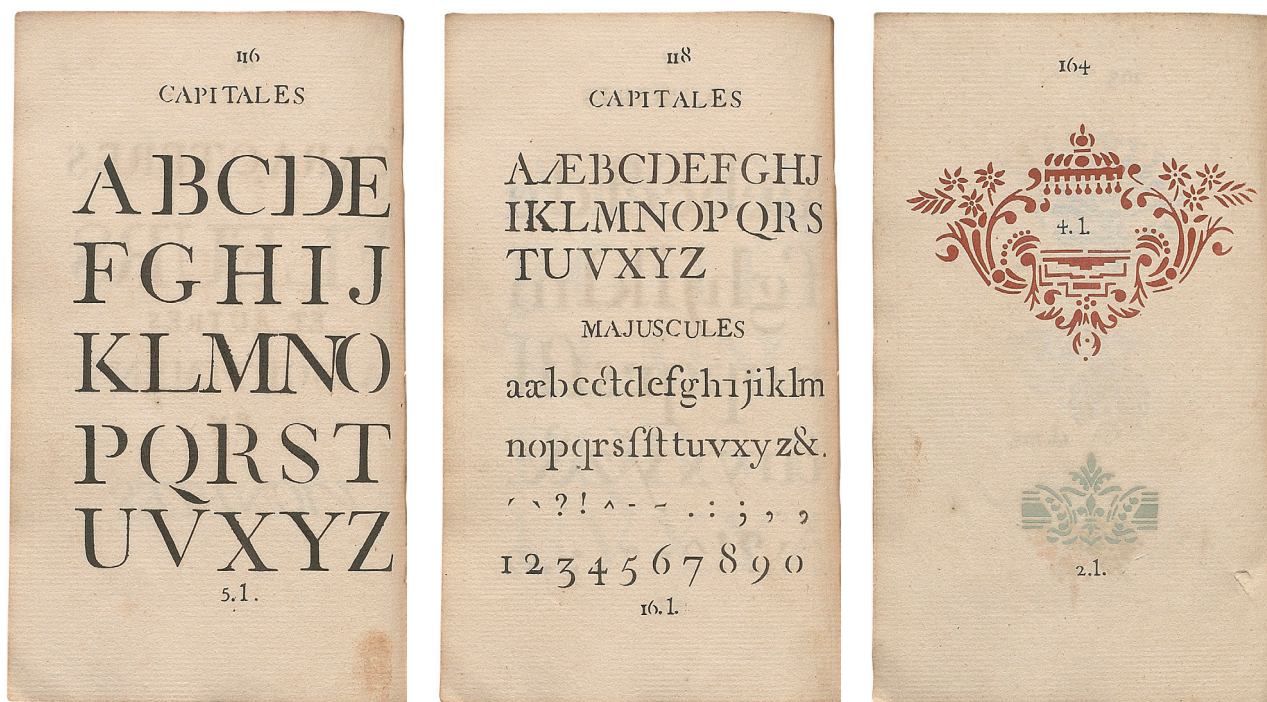 116
CAPITALES
ABCDE
FGHIJ
KLMNO
PQRST
UVXYZ
5.1.
118
CAPITALES
AÆBCDEFGHJ
IKLMNOPQRS
TUVXYZ
MAJUSCULES
aæbcctdefghıjiklm
nopqrsſſttuvxyz&.
´ ` ? ! ^ - ~ . : ; , ,
1 2 3 4 5 6 7 8 9 0
16.1.
164
4.1.
2.1.